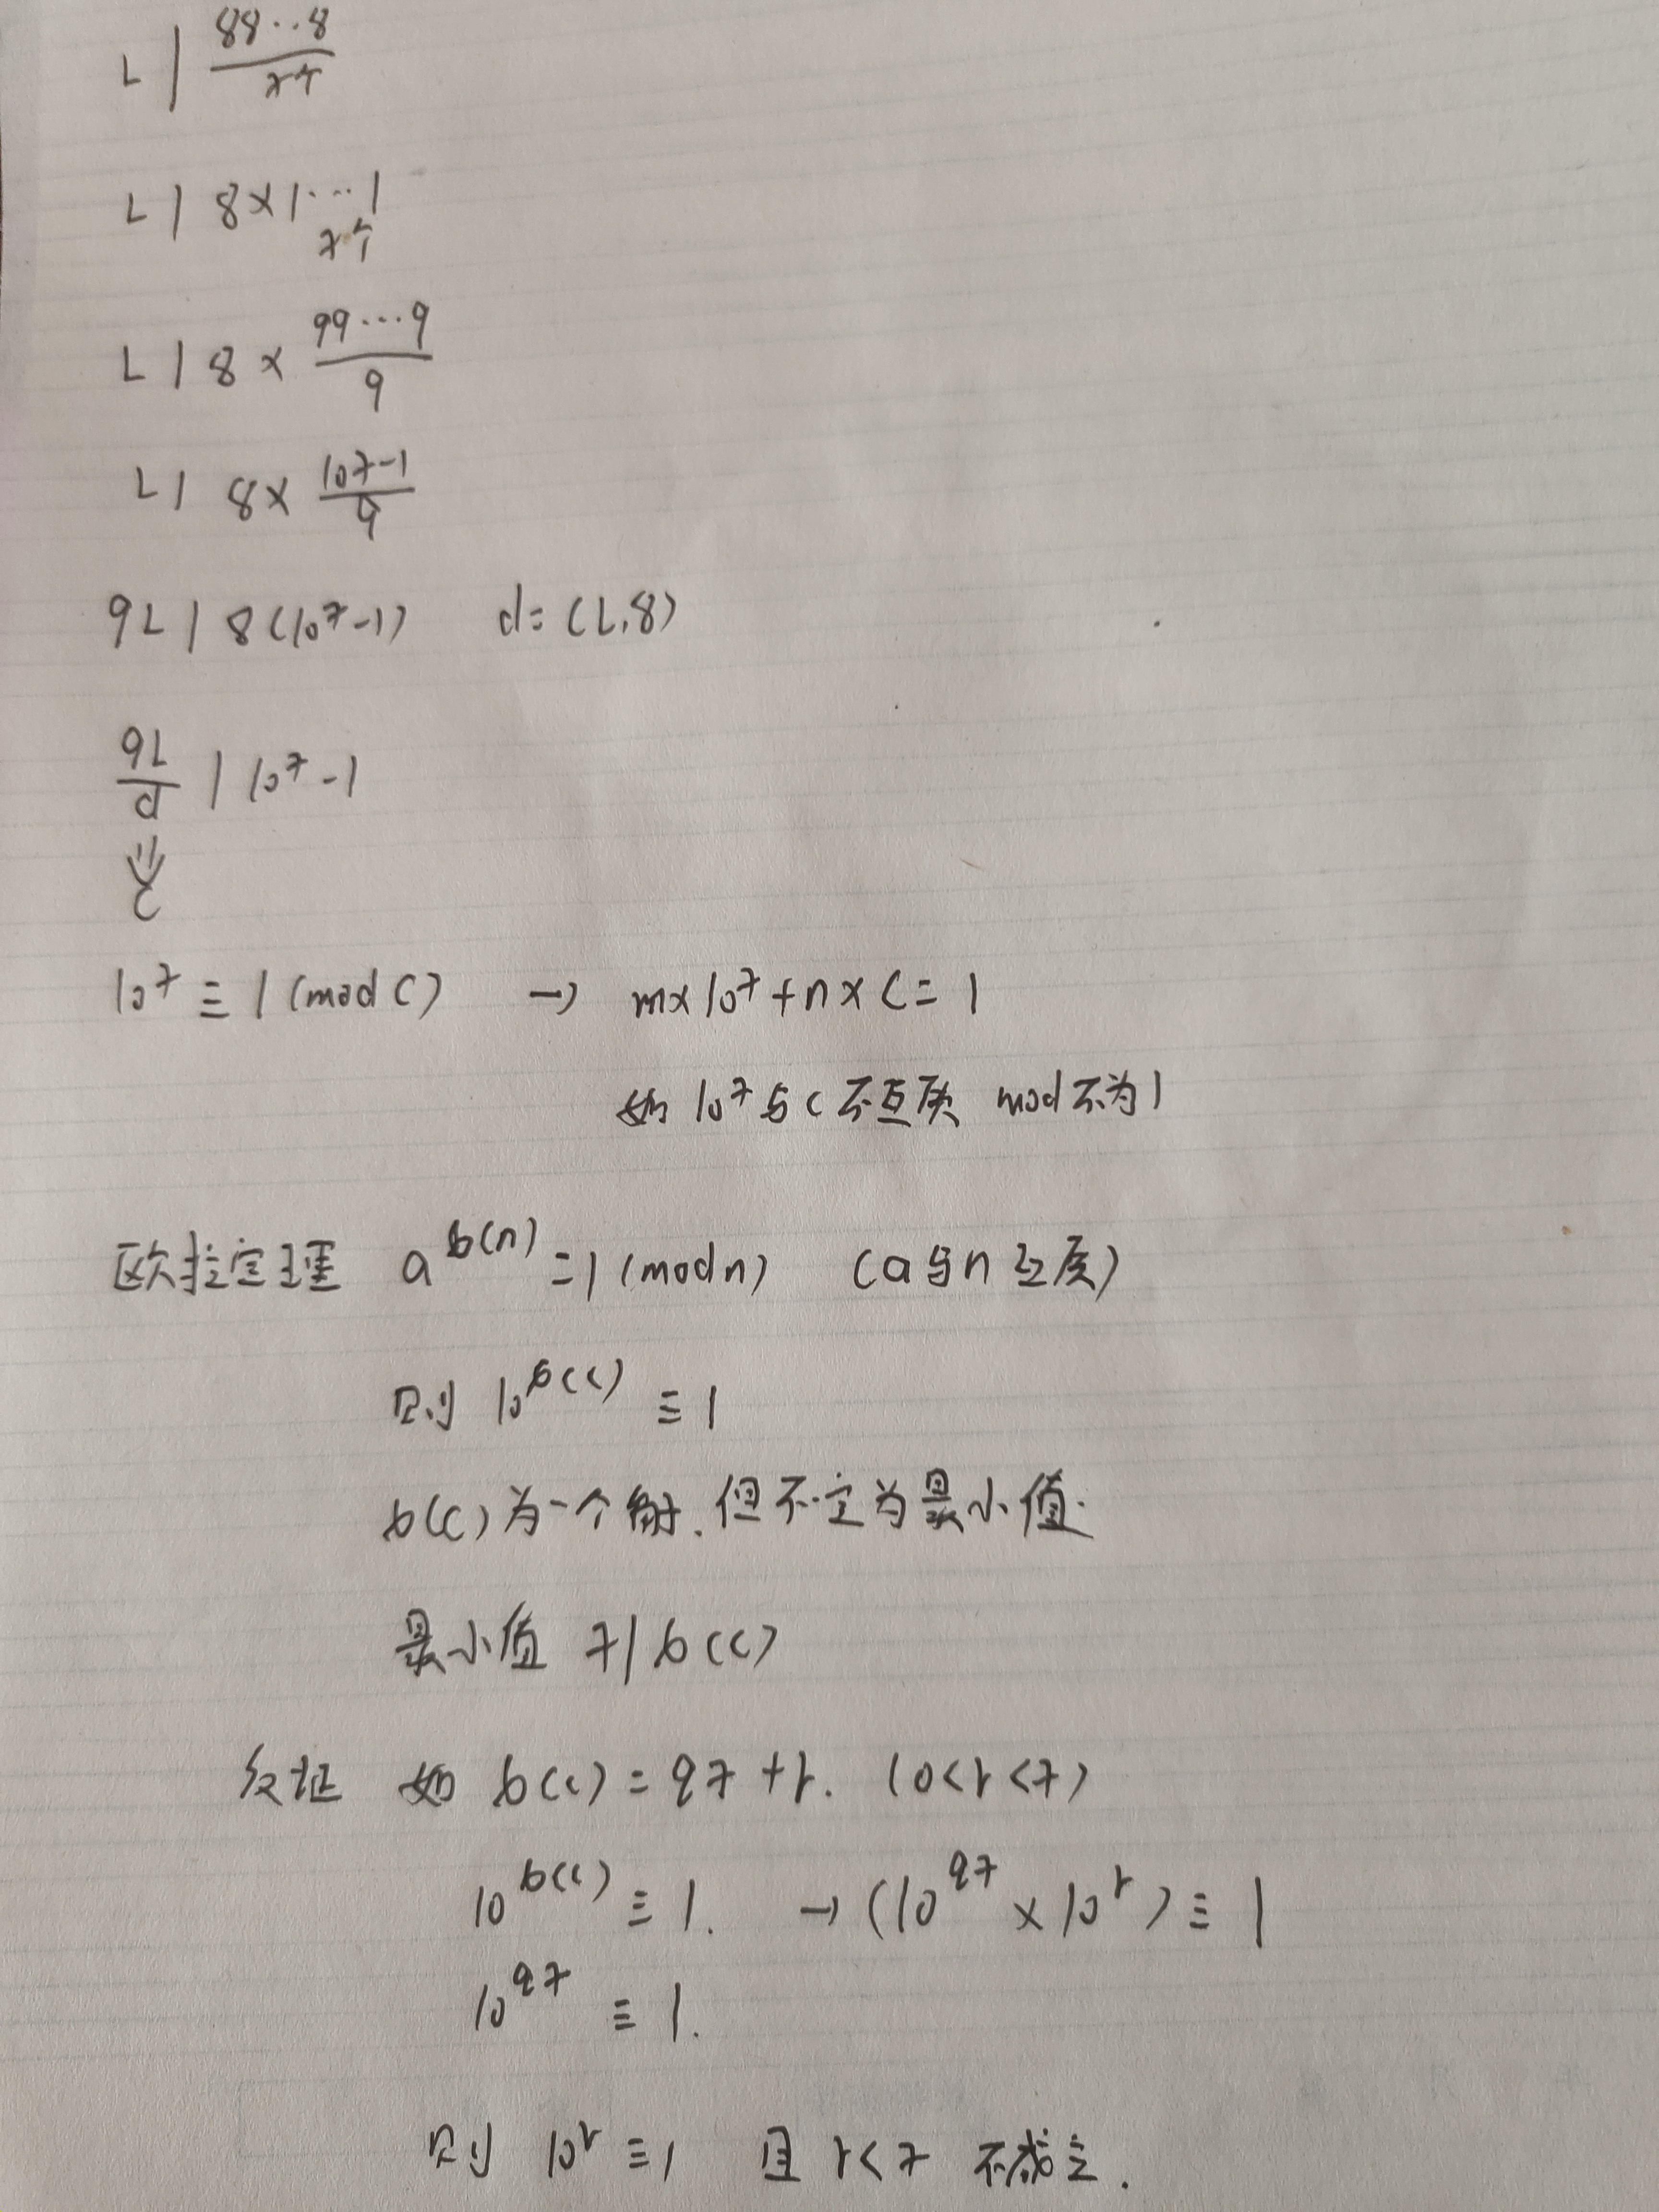 L | 88··8 / x个
L | 8×1···1 x个
L | 8 × 99···9 / 9
L | 8× 10^x-1 / 9
9L | 8(10^x-1) d=(L,8)
9L/d | 10^x-1
C
10^x ≡ 1 (mod C) → m×10^x+n×C=1
如 10^x与C不互质 mod不为1
欧拉定理 a^φ(n) =1 (mod n) (a与n互质)
则 10^φ(C) ≡ 1
φ(C)为一个解.但不一定为最小值.
最小值 x|φ(C)
反证 如 φ(C)=qx+r. (0<r<x)
10^φ(C) ≡ 1. → (10^qx × 10^r) ≡ 1
10^qx ≡ 1.
则 10^r ≡ 1 且 r<x 不成立.